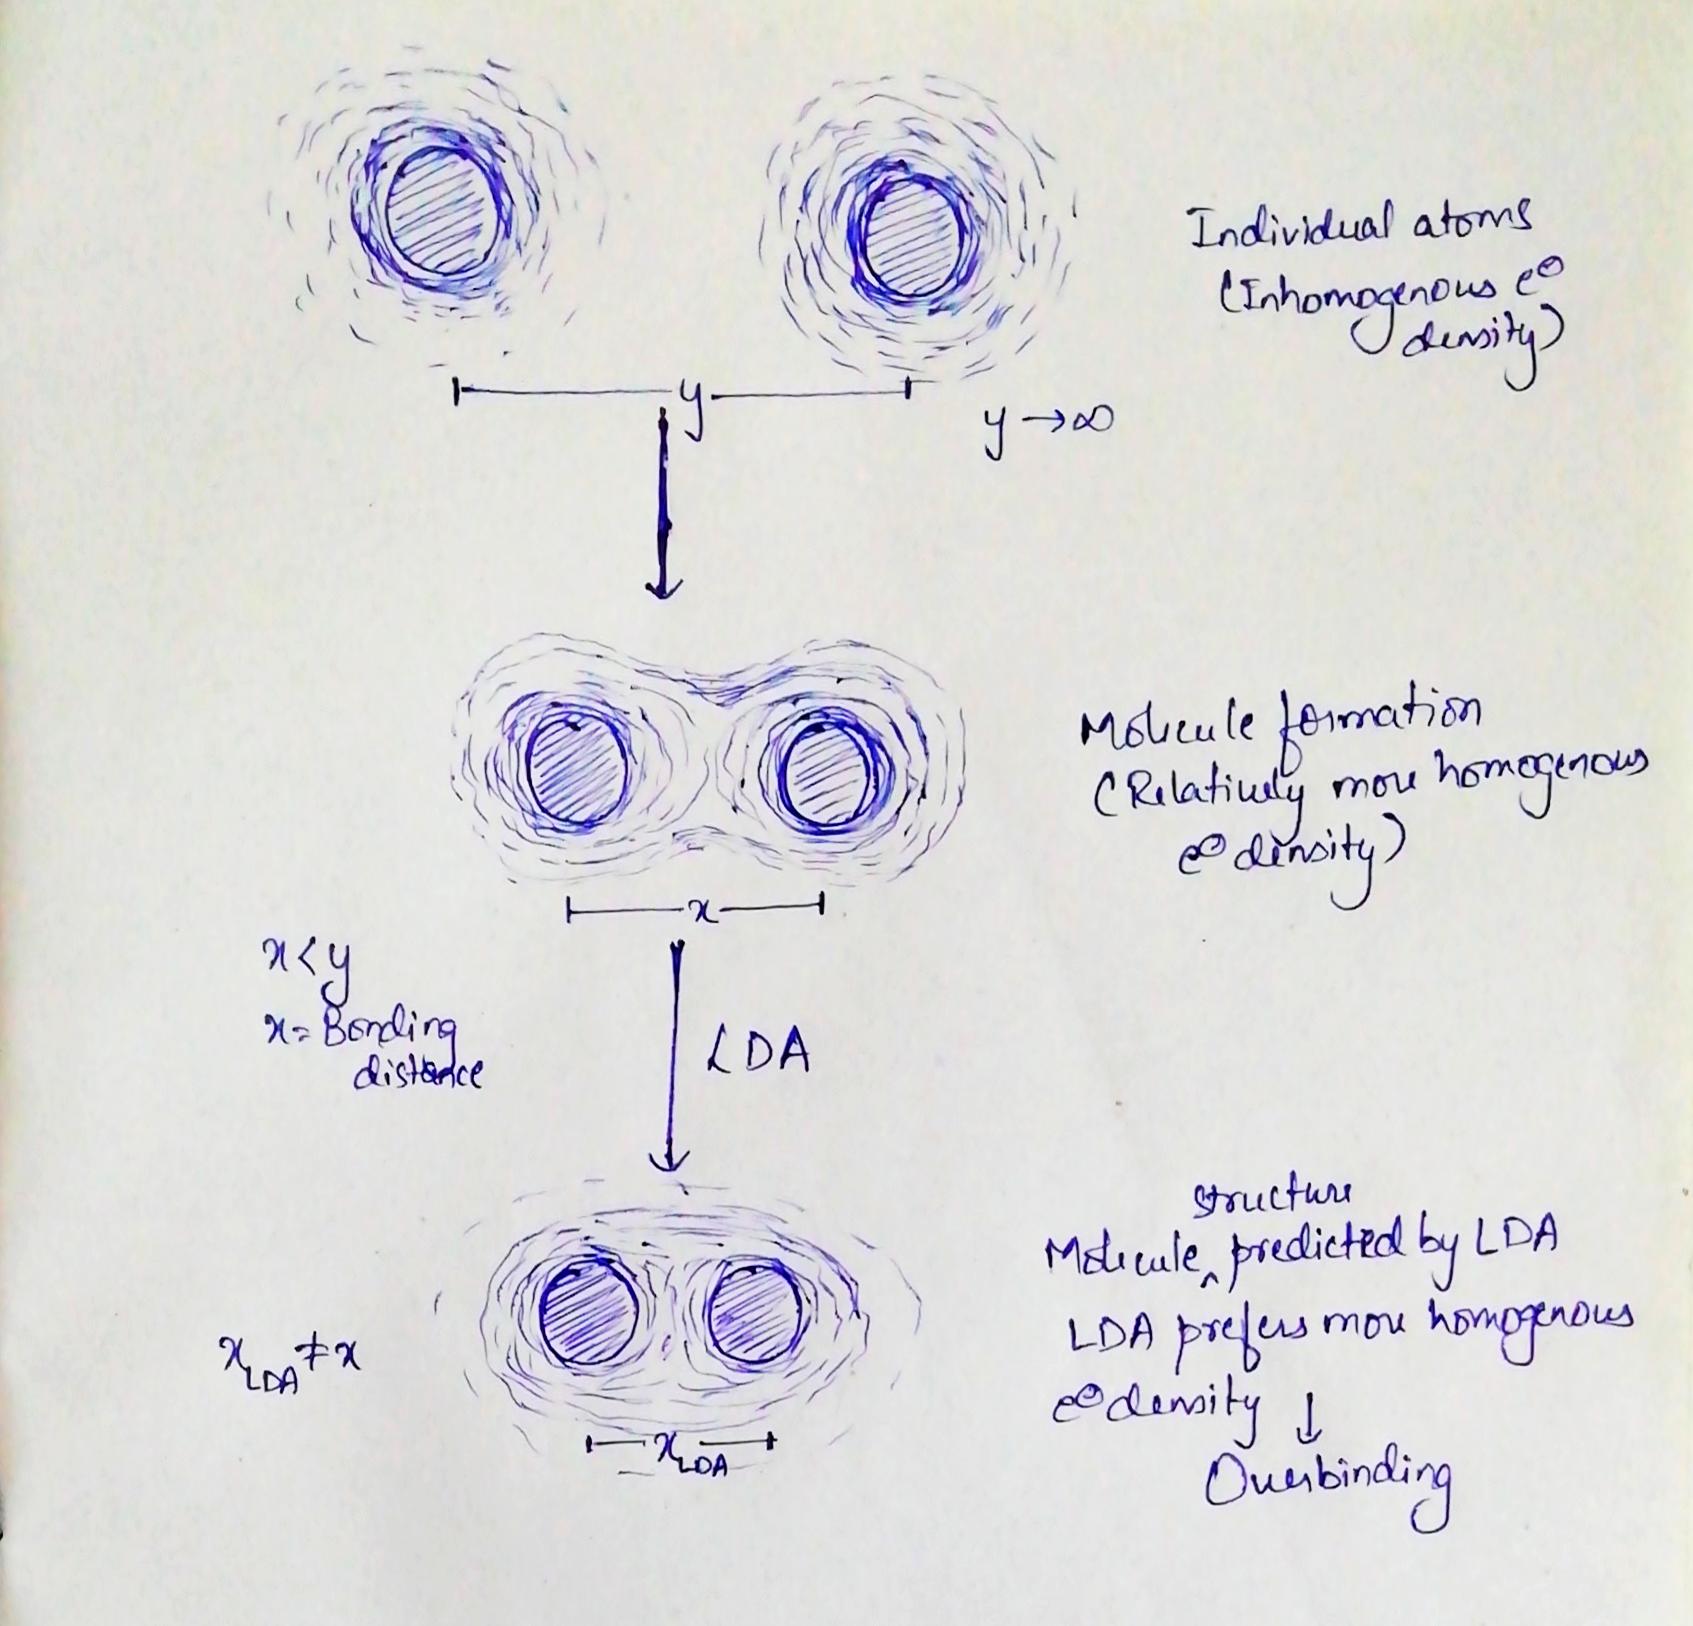 Individual atoms
(Inhomogenous e⊖
density)
y
y → ∞
Molecule formation
(Relatively more homogenous
e⊖ density)
x
x < y
x = Bonding
distance
LDA
structure
Molecule ^ predicted by LDA
LDA prefers more homogenous
e⊖ density ↓
Overbinding
x_LDA ≠ x
x_LDA